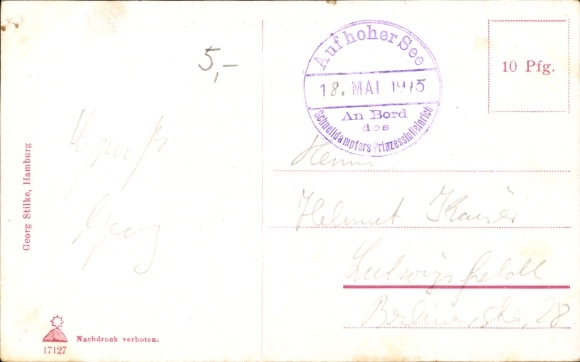 5,-
Auf hoher See
18. MAI 1915
An Bord
des
Schnelldampfers Prinzessin Heinrich
10 Pfg.
Georg Stilke, Hamburg
Georg
Herrn
Helmut Kaiser
Berlinerstr. 28
Nachdruck verboten.
17127